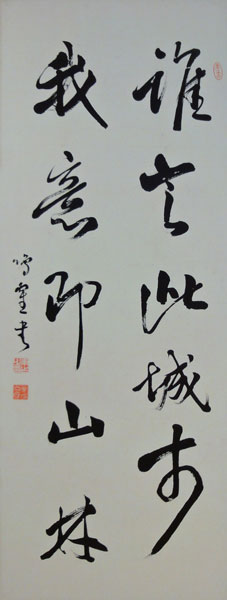 誰言此城市
我意即山林
鳴寉書